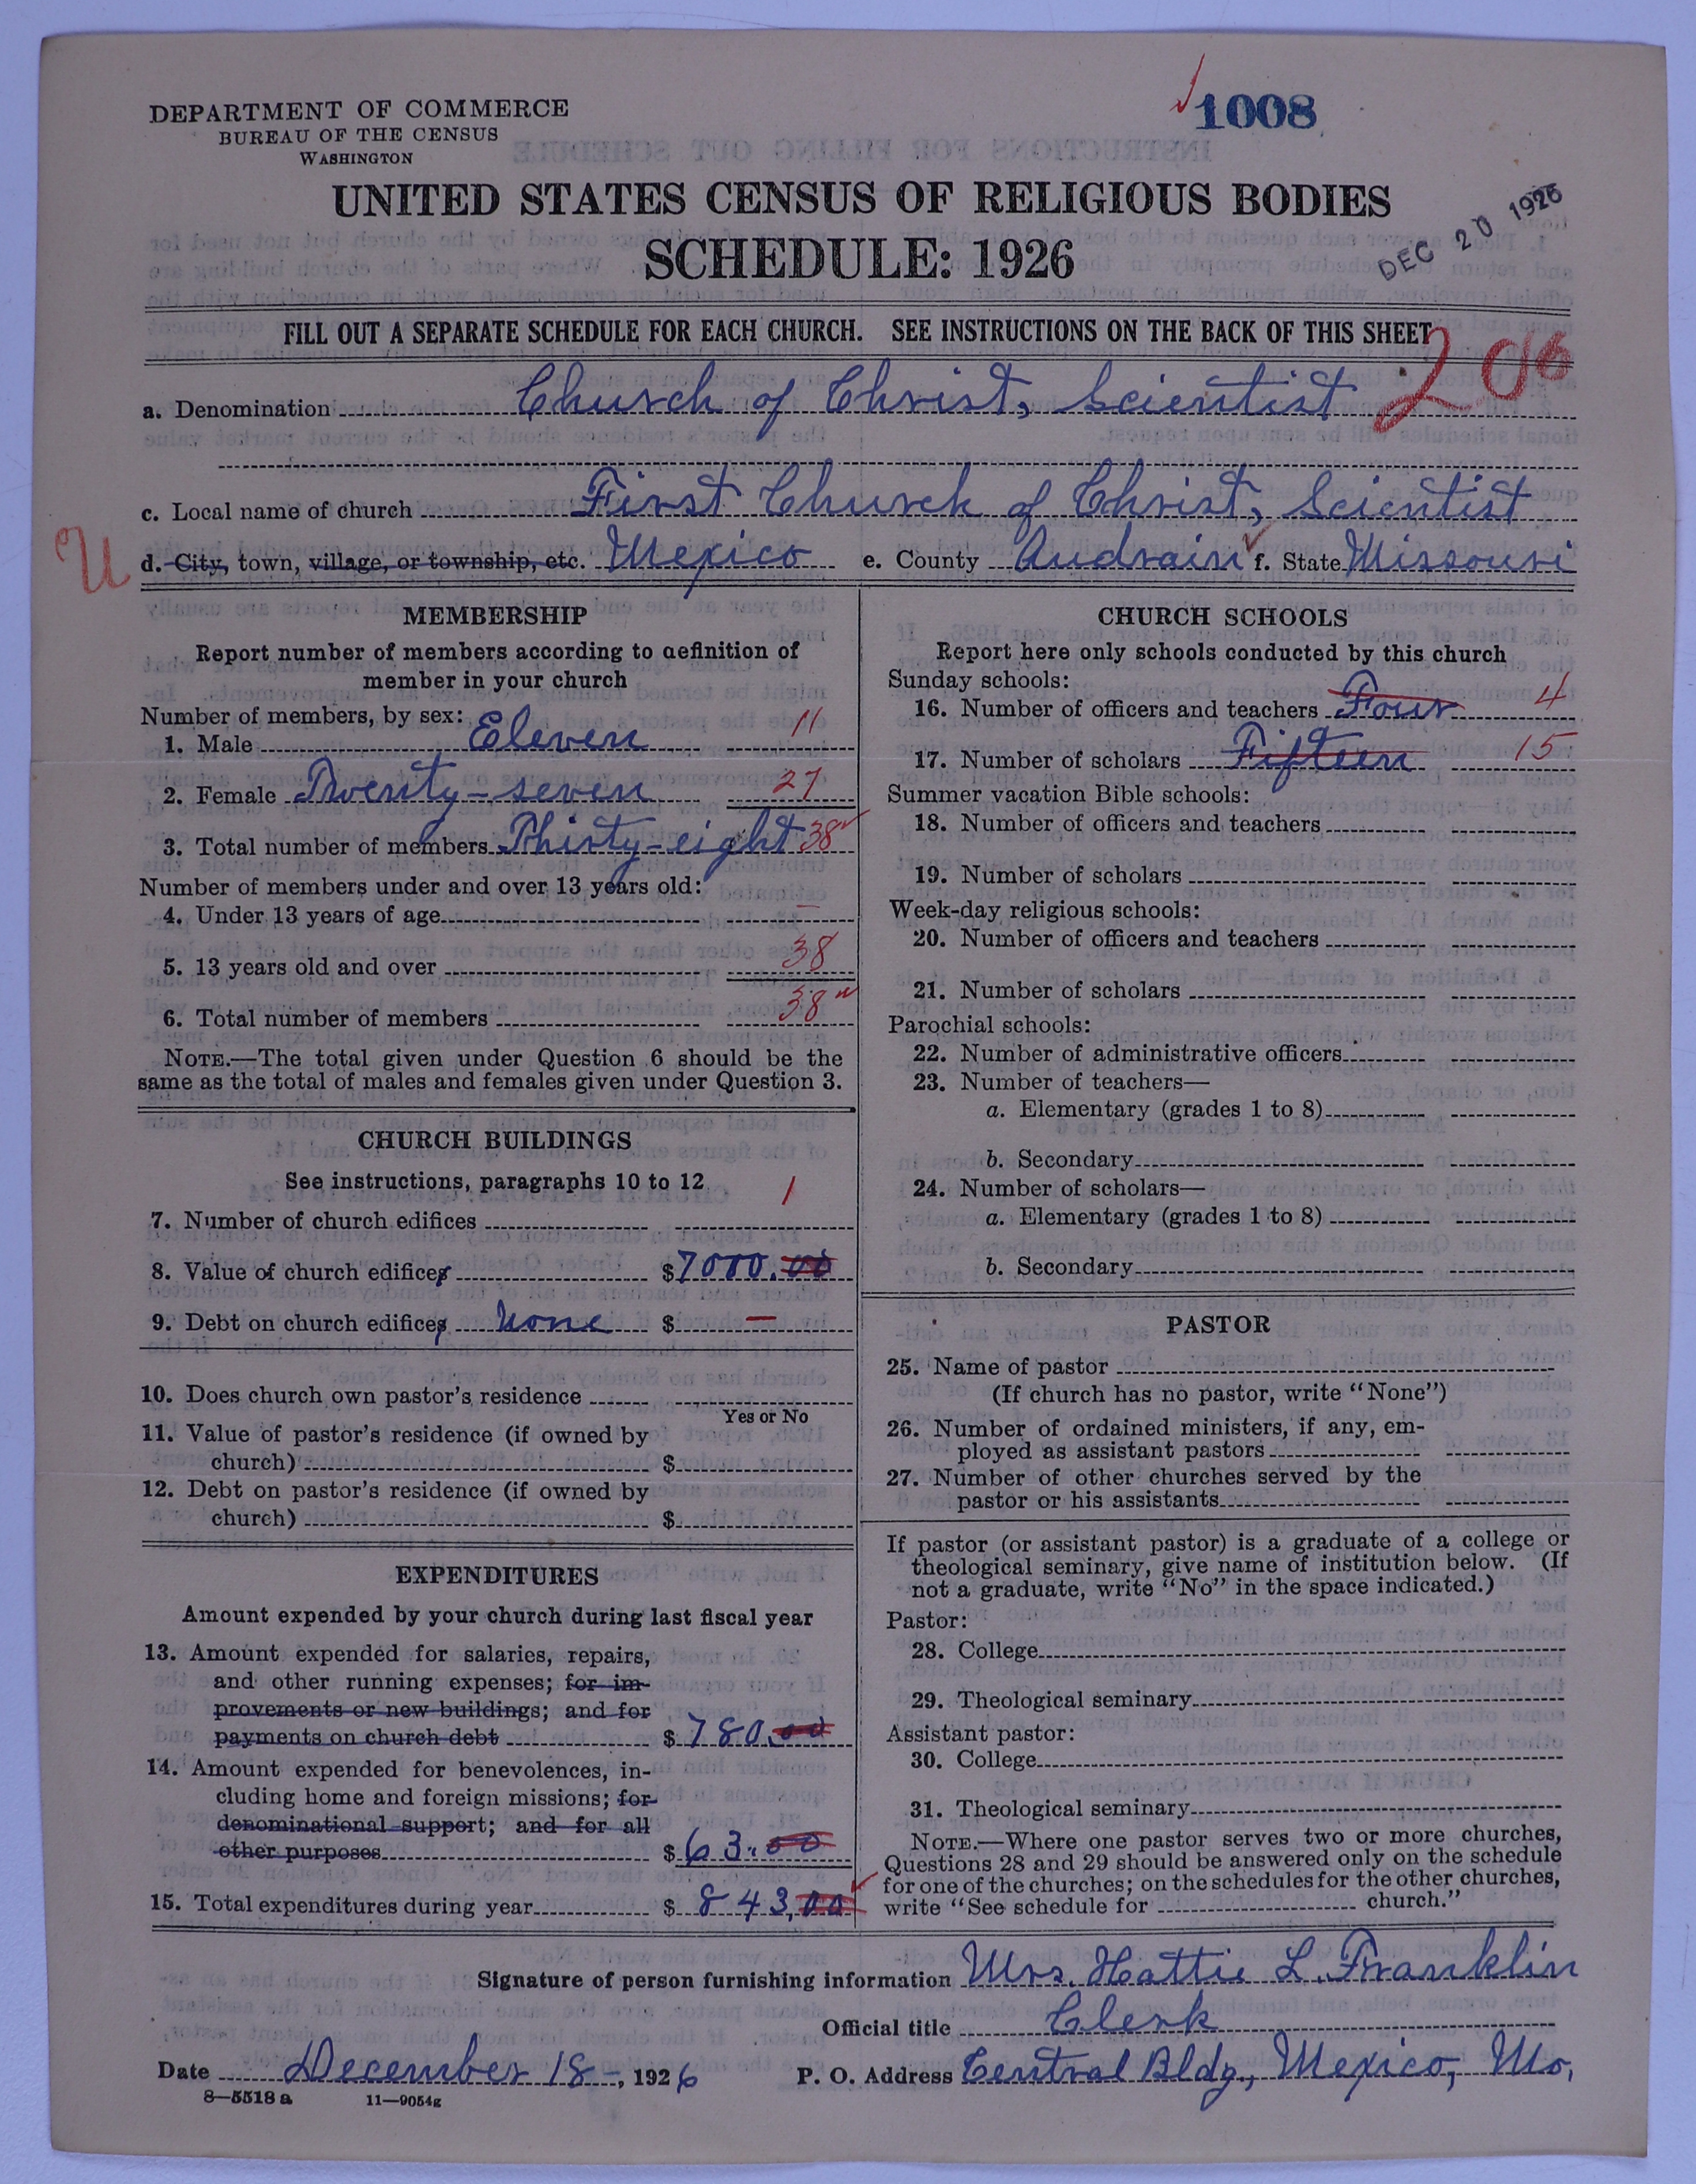 1008
DEPARTMENT OF COMMERCE
BUREAU OF THE CENSUS
WASHINGTON
UNITED STATES CENSUS OF RELIGIOUS BODIES
SCHEDULE: 1926
DEC 20 1926
FILL OUT A SEPARATE SCHEDULE FOR EACH CHURCH. SEE INSTRUCTIONS ON THE BACK OF THIS SHEET
206
a. Denomination Church of Christ, Scientist
c. Local name of church First Church of Christ, Scientist
U
d. City, town, village, or township, etc. Mexico e. County Audrain f. State Missouri
MEMBERSHIP
Report number of members according to definition of
member in your church
Number of members, by sex:
1. Male Eleven 11
2. Female Twenty-seven 27
3. Total number of members Thirty-eight 38
Number of members under and over 13 years old:
4. Under 13 years of age –
5. 13 years old and over 38
6. Total number of members 38
NOTE.—The total given under Question 6 should be the
same as the total of males and females given under Question 3.
CHURCH BUILDINGS
See instructions, paragraphs 10 to 12
7. Number of church edifices 1
8. Value of church edifices $7000.00
9. Debt on church edifices None $ —
10. Does church own pastor's residence
Yes or No
11. Value of pastor's residence (if owned by
church) $
12. Debt on pastor's residence (if owned by
church) $
EXPENDITURES
Amount expended by your church during last fiscal year
13. Amount expended for salaries, repairs,
and other running expenses; for im-
provements or new buildings; and for
payments on church debt $ 780.00
14. Amount expended for benevolences, in-
cluding home and foreign missions; for
denominational support; and for all
other purposes $ 63.00
15. Total expenditures during year $ 843.00
CHURCH SCHOOLS
Report here only schools conducted by this church
Sunday schools:
16. Number of officers and teachers Four 4
17. Number of scholars Fifteen 15
Summer vacation Bible schools:
18. Number of officers and teachers
19. Number of scholars
Week-day religious schools:
20. Number of officers and teachers
21. Number of scholars
Parochial schools:
22. Number of administrative officers
23. Number of teachers—
a. Elementary (grades 1 to 8)
b. Secondary
24. Number of scholars—
a. Elementary (grades 1 to 8)
b. Secondary
PASTOR
25. Name of pastor
(If church has no pastor, write "None")
26. Number of ordained ministers, if any, em-
ployed as assistant pastors
27. Number of other churches served by the
pastor or his assistants
If pastor (or assistant pastor) is a graduate of a college or
theological seminary, give name of institution below. (If
not a graduate, write "No" in the space indicated.)
Pastor:
28. College
29. Theological seminary
Assistant pastor:
30. College
31. Theological seminary
NOTE.—Where one pastor serves two or more churches,
Questions 28 and 29 should be answered only on the schedule
for one of the churches; on the schedules for the other churches,
write "See schedule for church."
Signature of person furnishing information Mrs. Hattie L. Franklin
Official title Clerk
Date December 18-, 1926 P. O. Address Central Bldg., Mexico, Mo.
8—5518 a 11—9054g